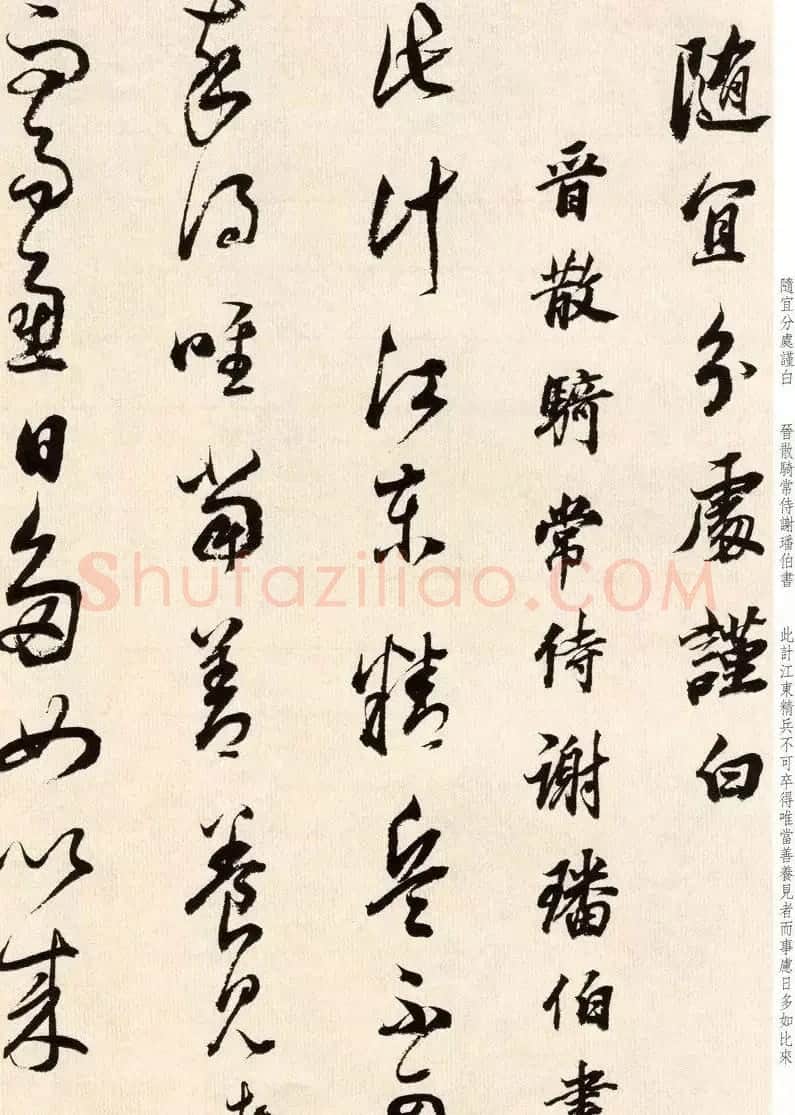 隨宜分處謹白 晉散騎常侍謝璠伯書 此計江東精兵不可卒得唯當善養見者而事慮日多如比來
随宜分處謹白
晉散騎常侍謝璠伯書
此計江東精兵不可
卒得唯當善養見者
而事慮日多如比來
Shufaziliao.COM